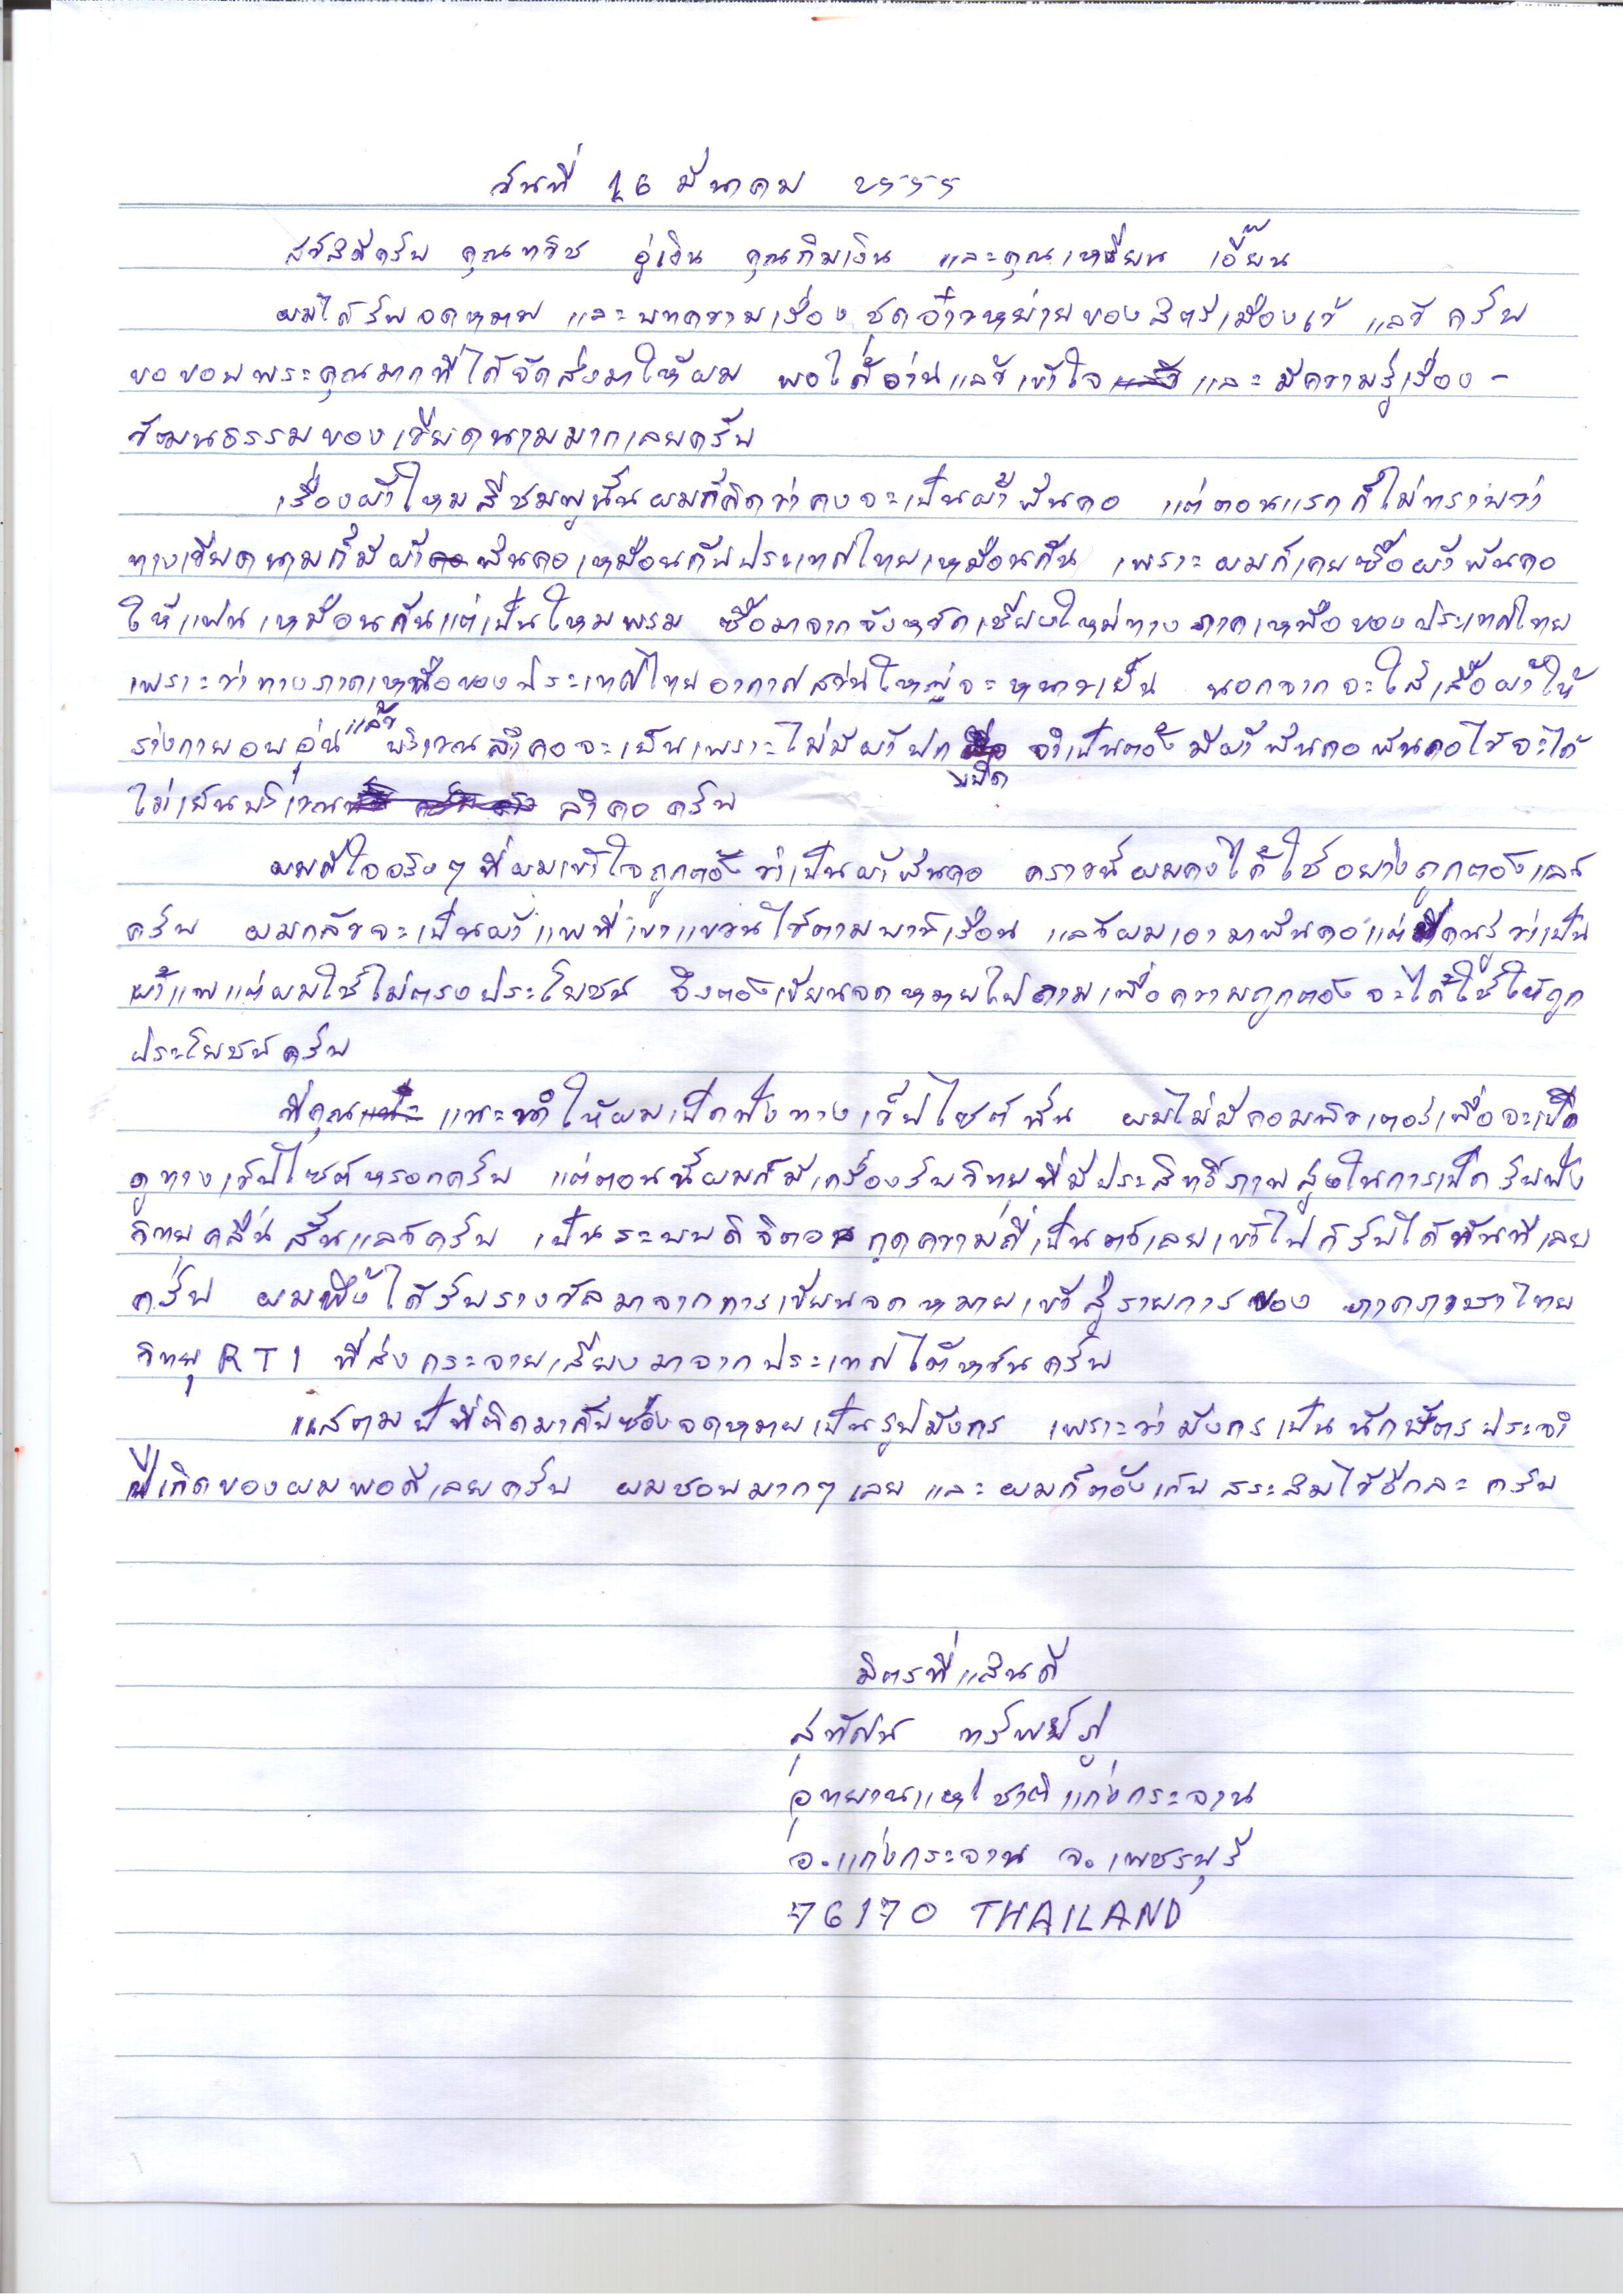 วันที่ 16 มีนาคม 2555
สวัสดีครับ คุณทวิช อู่เงิน คุณกิมเงิน และคุณเหวียน เอี๊ยน
ผมได้รับจดหมาย และบทความเรื่อง ชุดอ๋าวหย่ายของสตรีเมืองเว้ แล้วครับ
ขอขอบพระคุณมากที่ได้จัดส่งมาให้ผม พอได้อ่านแล้วเข้าใจ และมีความรู้เรื่อง-
วัฒนธรรมของเวียดนามมากเลยครับ
เรื่องผ้าไหมสีชมพูนั้นผมก็คิดว่าคงจะเป็นผ้าพันคอ แต่ตอนแรกก็ไม่ทราบว่า
ทางเวียดนามก็มีผ้าพันคอเหมือนกับประเทศไทยเหมือนกัน เพราะผมก็เคยซื้อผ้าพันคอ
ให้แฟนเหมือนกันแต่เป็นไหมพรม ซื้อมาจากจังหวัดเชียงใหม่ทางภาคเหนือของประเทศไทย
เพราะว่าทางภาคเหนือของประเทศไทยอากาศส่วนใหญ่จะหนาวเย็น นอกจากจะใส่เสื้อผ้าให้
ร่างกายอบอุ่นแล้วบริเวณลำคอจะเย็นเพราะไม่มีผ้าปกปิด จำเป็นต้องมีผ้าพันคอพันคอไว้จะได้
ไม่เย็นบริเวณ ลำคอครับ
ผมดีใจจริงๆที่ผมเข้าใจถูกต้องว่าเป็นผ้าพันคอ คราวนี้ผมคงได้ใช้อย่างถูกต้องแล้ว
ครับ ผมกลัวจะเป็นผ้าแพที่เขาแขวนไว้ตามบานเรือน แล้วผมเอามาพันคอแต่คนรู้ว่าเป็น
ผ้าแพแต่ผมใช้ไม่ตรงประโยชน์ จึงต้องเขียนจดหมายไปถามเพื่อความถูกต้องจะได้ใช้ให้ถูก
ประโยชน์ครับ
ที่คุณ แนะนำให้ผมเปิดฟังทางเว็ปไซต์นั้น ผมไม่มีคอมพิวเตอร์เพื่อจะเปิด
ดูทางเว็ปไซต์หรอกครับ แต่ตอนนี้ผมก็มีเครื่องรับวิทยุที่มีประสิทธิภาพสูงในการเปิดรับฟัง
วิทยุคลื่นสั้นแล้วครับ เป็นระบบดิจิตอล กดความถี่เป็นตัวเลขเข้าไปก็รับได้ทันทีเลย
ครับ ผมพึ่งได้รับรางวัลมาจากการเขียนจดหมายเข้าสู่รายการของ ภาคภาษาไทย
วิทยุ RTI ที่ส่งกระจายเสียงมาจากประเทศไต้หวันครับ
แสตมป์ที่ติดมากับซองจดหมายเป็นรูปมังกร เพราะว่ามังกรเป็นนักษัตรประจำ
ปีเกิดของผมพอดีเลยครับ ผมชอบมากๆเลย และผมก็ต้องเก็บสระสมไว้อีกละครับ
มิตรที่แสนดี
สุทัศน ทรัพย์ภู่
อุทยานแห่งชาติแก่งกระจาน
อ.แก่งกระจาน จ.เพชรบุรี
76170 THAILAND